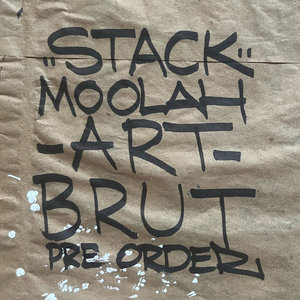 "STACK"
MOOLAH
-ART-
BRUT
PRE ORDER